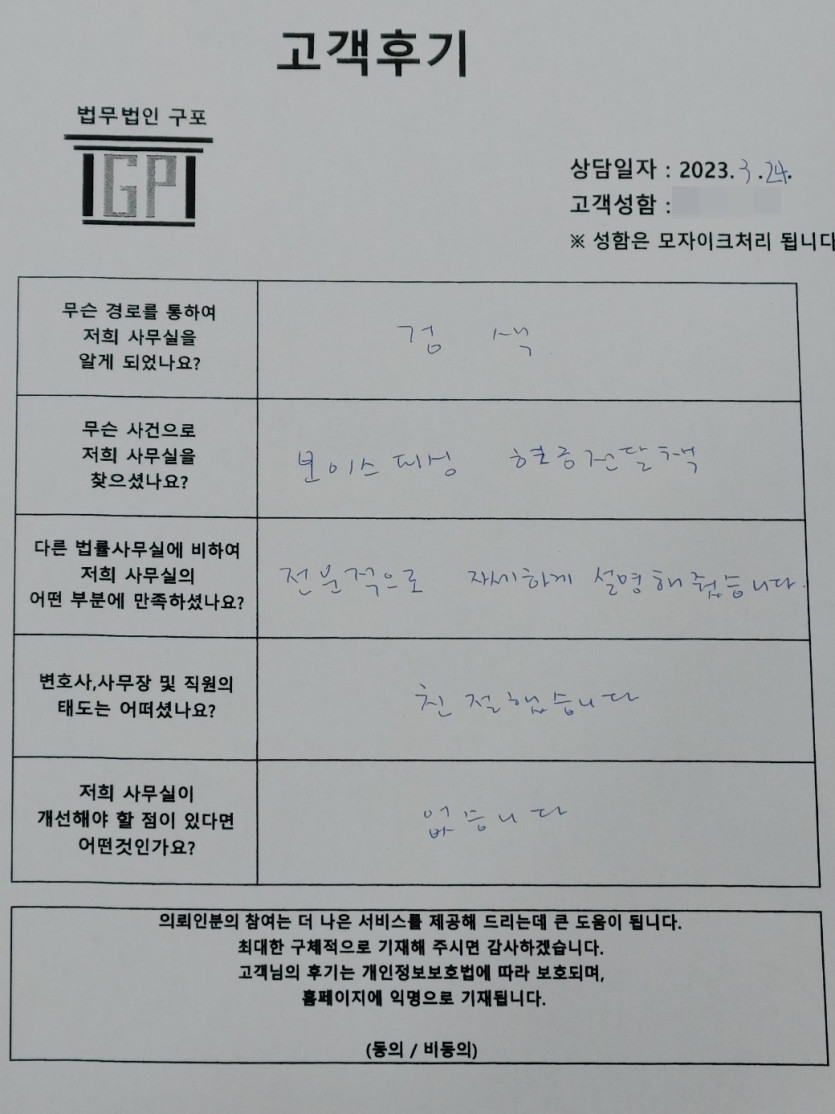 고객후기
법무법인 구포
GP
상담일자 : 2023. 3. 24.
고객성함 :
※ 성함은 모자이크처리 됩니다
무슨 경로를 통하여
저희 사무실을
알게 되었나요?
검 색
무슨 사건으로
저희 사무실을
찾으셨나요?
보이스피싱 현금전달책
다른 법률사무실에 비하여
저희 사무실의
어떤 부분에 만족하셨나요?
전문적으로 자세하게 설명해줬습니다.
변호사,사무장 및 직원의
태도는 어떠셨나요?
친절했습니다
저희 사무실이
개선해야 할 점이 있다면
어떤것인가요?
없습니다
의뢰인분의 참여는 더 나은 서비스를 제공해 드리는데 큰 도움이 됩니다.
최대한 구체적으로 기재해 주시면 감사하겠습니다.
고객님의 후기는 개인정보보호법에 따라 보호되며,
홈페이지에 익명으로 기재됩니다.
(동의 / 비동의)